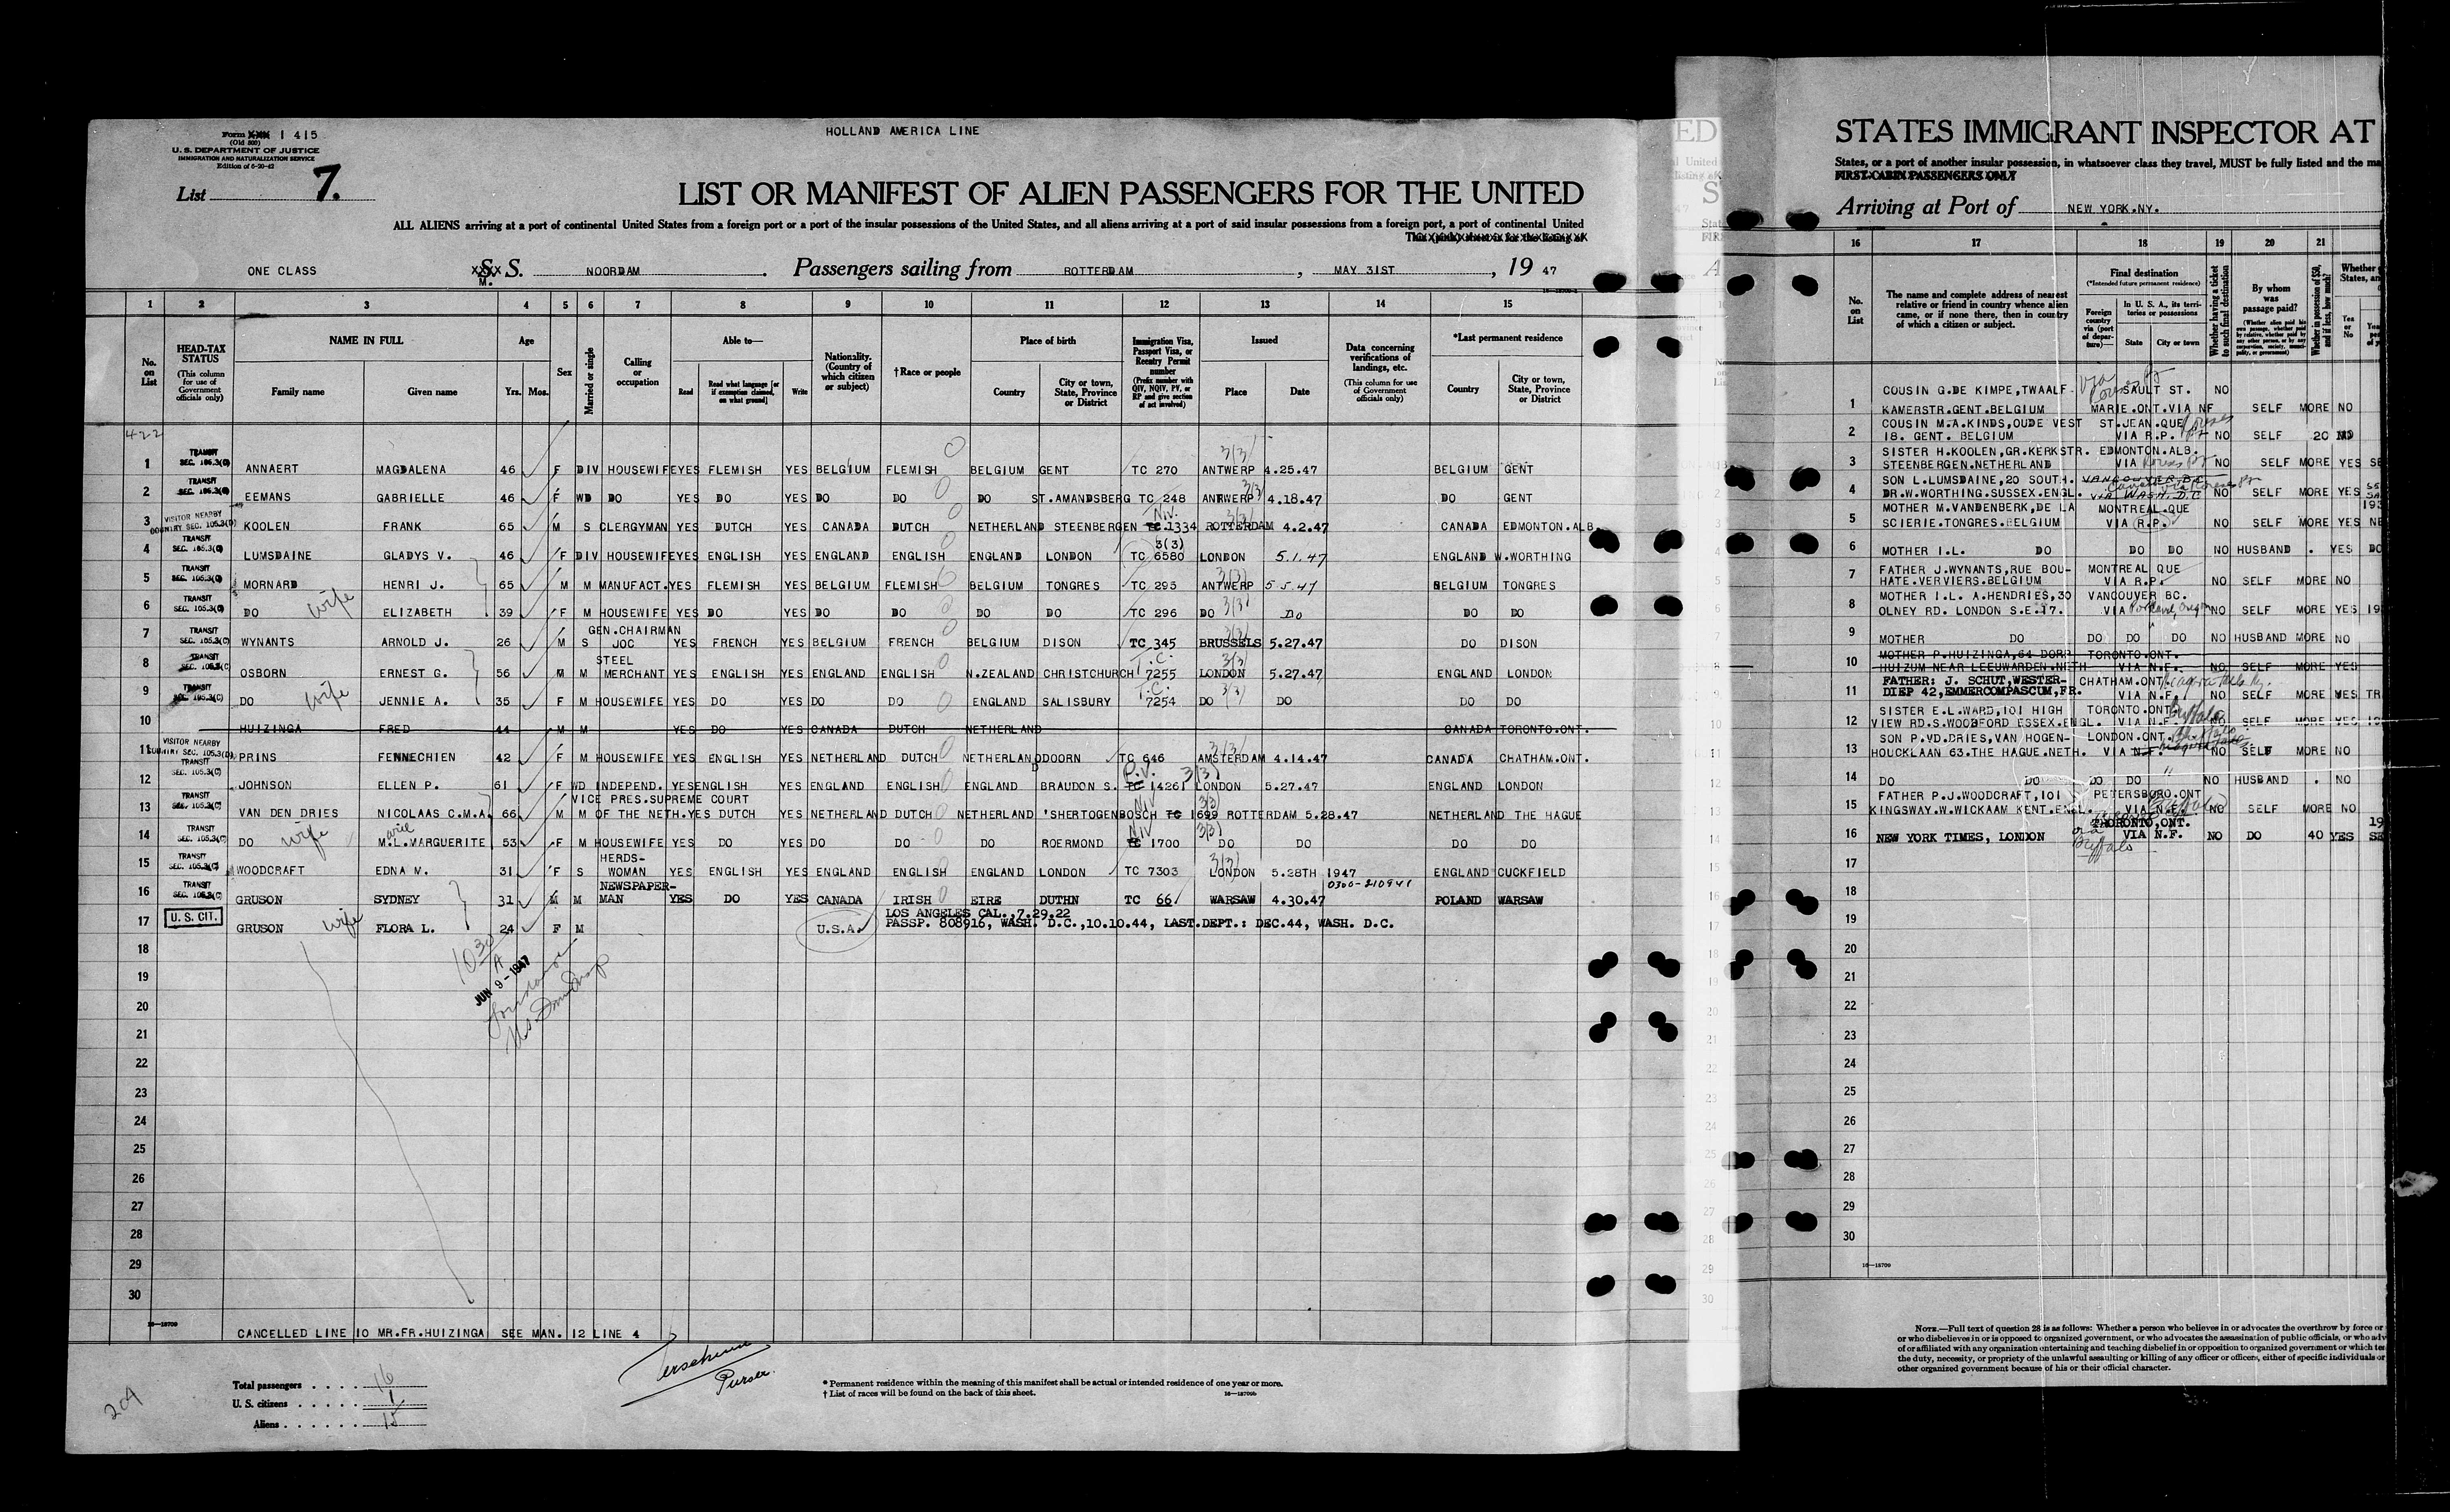 HOLLAND AMERICA LINE
Form I 415
(Old 500)
U. S. DEPARTMENT OF JUSTICE
IMMIGRATION AND NATURALIZATION SERVICE
Edition of 6-20-42
List 7.
LIST OR MANIFEST OF ALIEN PASSENGERS FOR THE UNITED
ALL ALIENS arriving at a port of continental United States from a foreign port or a port of the insular possessions of the United States, and all aliens arriving at a port of said insular possessions from a foreign port, a port of continental United
ONE CLASS S. S. M. NOORDAM. Passengers sailing from ROTTERDAM, MAY 31ST, 19 47
1 2 3 4 5 6 7 8 9 10 11 12 13 14 15
No. on List
HEAD-TAX STATUS (This column for use of Government officials only)
NAME IN FULL Family name Given name
Age Yrs. Mos.
Sex
Married or single
Calling or occupation
Able to— Read Read what language [or if exemption claimed, on what ground] Write
Nationality. (Country of which citizen or subject)
†Race or people
Place of birth Country City or town, State, Province or District
Immigration Visa, Passport Visa, or Reentry Permit number (Prefix number with QIV, NQIV, PV, or RP and give section of act involved)
Issued Place Date
Data concerning verifications of landings, etc. (This column for use of Government officials only)
*Last permanent residence Country City or town, State, Province or District
422
1 TRANSIT SEC. 105.3(C) ANNAERT MAGDALENA 46 F DIV HOUSEWIFE YES FLEMISH YES BELGIUM FLEMISH BELGIUM GENT TC 270 3(3) ANTWERP 4.25.47 BELGIUM GENT
2 TRANSIT SEC. 105.3(C) EEMANS GABRIELLE 46 F WD DO YES DO YES DO DO DO ST.AMANDSBERG TC 248 3(3) ANTWERP 4.18.47 DO GENT
3 VISITOR NEARBY COUNTRY SEC. 105.3(D) KOOLEN FRANK 65 M S CLERGYMAN YES DUTCH YES CANADA DUTCH NETHERLAND STEENBERGEN Niv. TC 1334 3(3) ROTTERDAM 4.2.47 CANADA EDMONTON.ALB.
4 TRANSIT SEC. 105.3(C) LUMSDAINE GLADYS V. 46 F DIV HOUSEWIFE YES ENGLISH YES ENGLAND ENGLISH ENGLAND LONDON 3(3) TC 6580 LONDON 5.1.47 ENGLAND W.WORTHING
5 TRANSIT SEC. 105.3(C) MORNARD HENRI J. 65 M M MANUFACT. YES FLEMISH YES BELGIUM FLEMISH BELGIUM TONGRES TC 295 3(3) ANTWERP 5 5.47 BELGIUM TONGRES
6 TRANSIT SEC. 105.3(C) DO wife ELIZABETH 39 F M HOUSEWIFE YES DO YES DO DO DO DO TC 296 DO 3(3) DO DO DO
7 TRANSIT SEC. 105.3(C) WYNANTS ARNOLD J. 26 M S GEN.CHAIRMAN JOC YES FRENCH YES BELGIUM FRENCH BELGIUM DISON TC 345 3(3) BRUSSELS 5.27.47 DO DISON
8 TRANSIT SEC. 105.3(C) OSBORN ERNEST G. 56 M M STEEL MERCHANT YES ENGLISH YES ENGLAND ENGLISH N.ZEALAND CHRISTCHURCH T.C. 7255 3(3) LONDON 5.27.47 ENGLAND LONDON
9 TRANSIT SEC. 105.3(C) DO wife JENNIE A. 35 F M HOUSEWIFE YES DO YES DO DO ENGLAND SALISBURY T.C. 7254 3(3) DO DO DO DO
10 HUIZINGA FRED 44 M M YES DO YES CANADA DUTCH NETHERLAND CANADA TORONTO.ONT.
11 VISITOR NEARBY COUNTRY SEC. 105.3(D) PRINS FENNECHIEN 42 F M HOUSEWIFE YES ENGLISH YES NETHERLAND DUTCH NETHERLAND DOORN TC 646 3(3) AMSTERDAM 4.14.47 CANADA CHATHAM.ONT.
12 TRANSIT SEC. 105.3(C) JOHNSON ELLEN P. 61 F WD INDEPEND. YES ENGLISH YES ENGLAND ENGLISH ENGLAND BRAUDON S. P.V. TC 14261 3(3) LONDON 5.27.47 ENGLAND LONDON
13 TRANSIT SEC. 105.3(C) VAN DEN DRIES NICOLAAS C.M.A. 66 M M VICE PRES.SUPREME COURT OF THE NETH. YES DUTCH YES NETHERLAND DUTCH NETHERLAND 'SHERTOGENBOSCH Niv TC 1699 3(3) ROTTERDAM 5.28.47 NETHERLAND THE HAGUE
14 TRANSIT SEC. 105.3(C) DO wife Marie M.L.MARGUERITE 53 F M HOUSEWIFE YES DO YES DO DO DO ROERMOND Niv TC 1700 3(3) DO DO DO DO
15 TRANSIT SEC. 105.3(C) WOODCRAFT EDNA M. 31 F S HERDS-WOMAN YES ENGLISH YES ENGLAND ENGLISH ENGLAND LONDON TC 7303 3(3) LONDON 5.28TH 1947 ENGLAND CUCKFIELD
16 TRANSIT SEC. 105.3(C) GRUSON SYDNEY 31 M M NEWSPAPER-MAN YES DO YES CANADA IRISH EIRE DUTHN TC 66 WARSAW 4.30.47 0300-210941 POLAND WARSAW
17 U. S. CIT. GRUSON wife FLORA L. 24 F M U.S.A. LOS ANGELES CAL.,7.29.22
PASSP. 808916, WASH. D.C.,10.10.44, LAST.DEPT.: DEC.44, WASH. D.C.
18
19
20
21
22
23
24
25
26
27
28
29
30
1030 A
JUN 9 - 1947
16—18709
CANCELLED LINE 10 MR.FR.HUIZINGA SEE MAN. 12 LINE 4
Purser.
204
Total passengers 16
U. S. citizens 1
Aliens 15
* Permanent residence within the meaning of this manifest shall be actual or intended residence of one year or more.
† List of races will be found on the back of this sheet.
16—18709b
STATES IMMIGRANT INSPECTOR AT
States, or a port of another insular possession, in whatsoever class they travel, MUST be fully listed and the ma
FIRST-CABIN PASSENGERS ONLY
Arriving at Port of NEW YORK.NY.
16 17 18 19 20 21
No. on List
The name and complete address of nearest relative or friend in country whence alien came, or if none there, then in country of which a citizen or subject.
Final destination (*Intended future permanent residence)
Foreign country via (port of departure)—
In U. S. A., its territories or possessions State City or town
Whether having a ticket to such final destination
By whom was passage paid?
Whether in possession of $50, and if less, how much?
Yes or No
1 COUSIN G.DE KIMPE,TWAALF- SAULT ST. NO
KAMERSTR.GENT.BELGIUM MARIE.ONT.VIA NF SELF MORE NO
2 COUSIN M.A.KINDS,OUDE VEST ST.JEAN.QUE
18. GENT. BELGIUM VIA R.P. NO SELF 20 NO
3 SISTER H.KOOLEN,GR.KERKSTR. EDMONTON.ALB.
STEENBERGEN.NETHERLAND VIA NO SELF MORE YES SE
4 SON L.LUMSDAINE,20 SOUTH. VANCOUVER BC
DR.W.WORTHING.SUSSEX.ENGL. VIA WASH.D.C NO SELF MORE YES
5 MOTHER M.VANDENBERK,DE LA MONTREAL.QUE
SCIERIE.TONGRES.BELGIUM VIA R.P. NO SELF MORE YES NE
6 MOTHER I.L. DO DO DO NO HUSBAND . YES DO
7 FATHER J.WYNANTS,RUE BOU- MONTREAL QUE
HATE.VERVIERS.BELGIUM VIA R.P. NO SELF MORE NO
8 MOTHER I.L. A.HENDRIES,30 VANCOUVER BC.
OLNEY RD. LONDON S.E.17. VIA Portland, Oregon NO SELF MORE YES 19
9 MOTHER DO DO DO DO NO HUSBAND MORE NO
10 MOTHER P.HUIZINGA,64 DORP TORONTO.ONT.
HUIZUM NEAR LEEUWARDEN.NETH VIA N.F. NO SELF MORE YES
11 FATHER: J. SCHUT,WESTER- CHATHAM.ONT
DIEP 42,EMMERCOMPASCUM,FR. VIA N.F. NO SELF MORE YES TR
12 SISTER E.L.WARD,101 HIGH TORONTO.ONT Buffalo
VIEW RD.S.WOODFORD ESSEX.ENGL. VIA N.F. NO SELF MORE YES
13 SON P.VD.DRIES,VAN HOGEN- LONDON.ONT. Buffalo
HOUCKLAAN 63.THE HAGUE.NETH. VIA N.F. NO SELF MORE NO
14 DO DO DO DO " NO HUSBAND . NO
15 FATHER P.J.WOODCRAFT,101 PETERSBORO.ONT
KINGSWAY.W.WICKAAM KENT.ENGL. VIA N.F. Buffalo NO SELF MORE NO
16 NEW YORK TIMES, LONDON TORONTO,ONT.
VIA N.F. via Buffalo NO DO 40 YES SE
17
18
19
20
21
22
23
24
25
26
27
28
29
30
16—18709
NOTE.—Full text of question 28 is as follows: Whether a person who believes in or advocates the overthrow by force or
or who disbelieves in or is opposed to organized government, or who advocates the assassination of public officials, or who adv
of or affiliated with any organization entertaining and teaching disbelief in or opposition to organized government or which te
the duty, necessity, or propriety of the unlawful assaulting or killing of any officer or officers, either of specific individuals or
other organized government because of his or their official character.